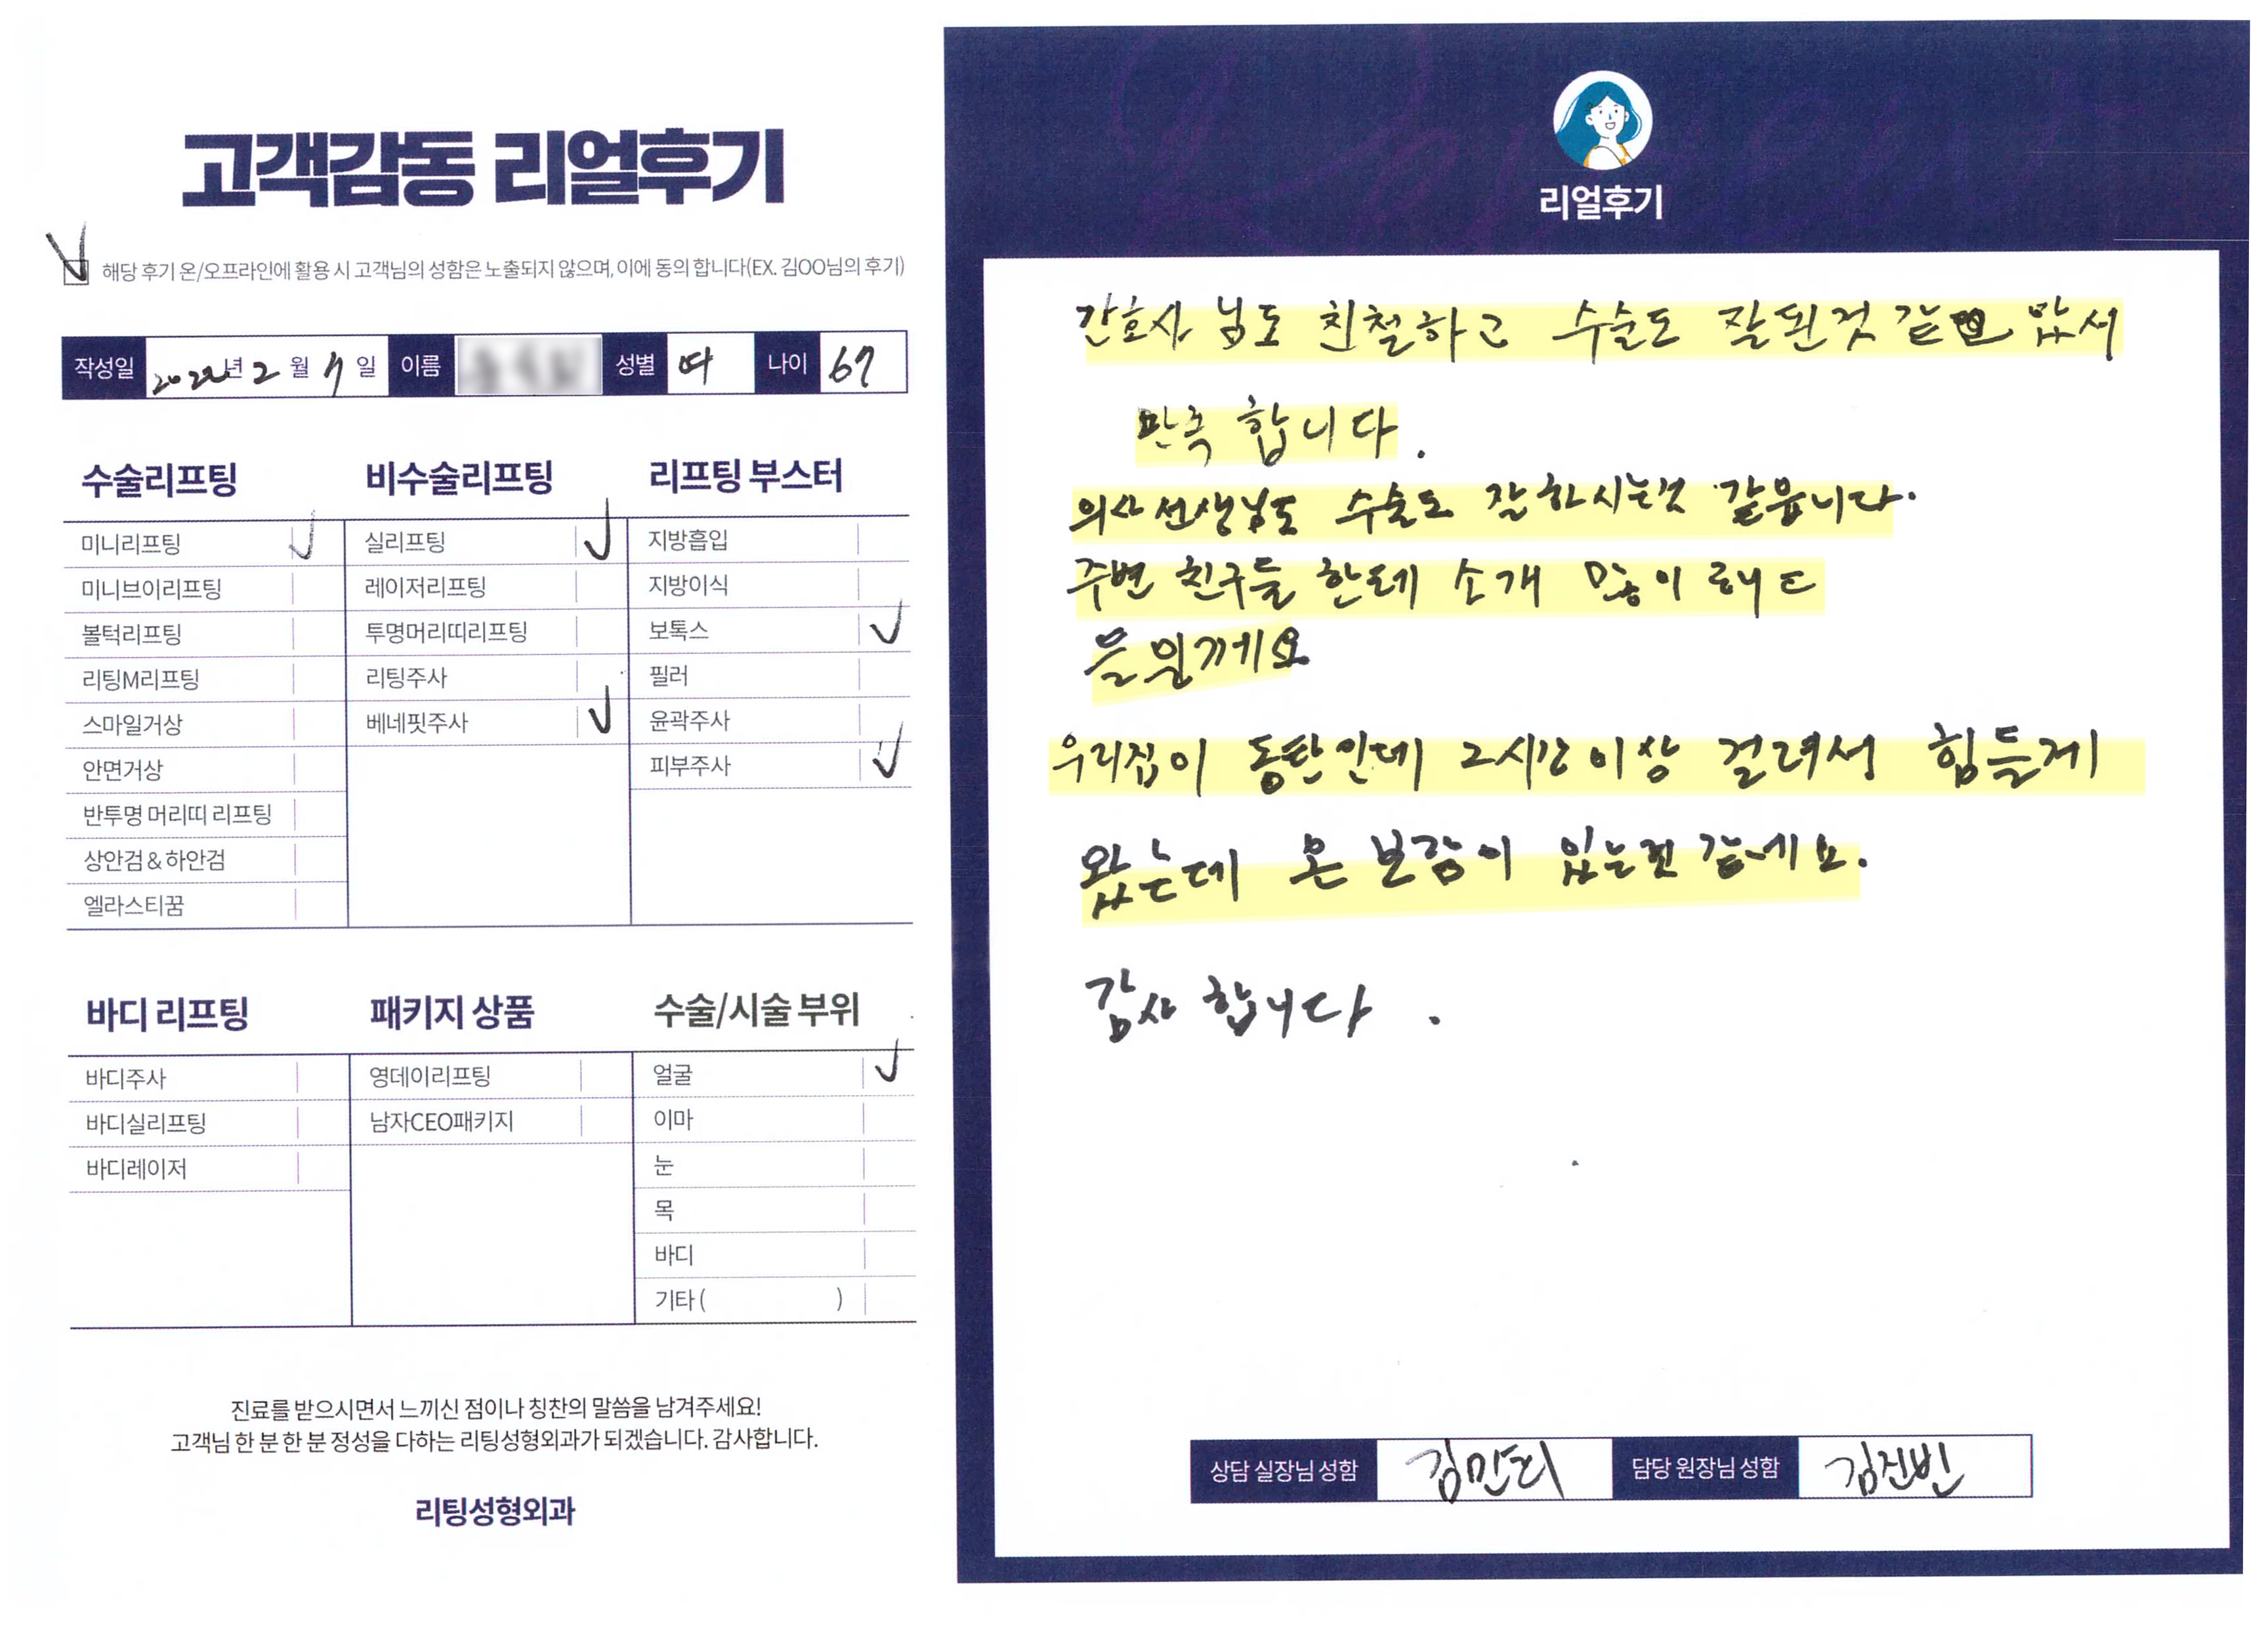 고객감동 리얼후기
해당 후기 온/오프라인에 활용 시 고객님의 성함은 노출되지 않으며, 이에 동의 합니다(EX. 김OO님의 후기)
작성일 2022년 2월 7일 이름 성별 여 나이 67
수술리프팅 비수술리프팅 리프팅 부스터
미니리프팅 실리프팅 지방흡입
미니브이리프팅 레이저리프팅 지방이식
볼턱리프팅 투명머리띠리프팅 보톡스
리팅M리프팅 리팅주사 필러
스마일거상 베네핏주사 윤곽주사
안면거상 피부주사
반투명 머리띠 리프팅
상안검 & 하안검
엘라스티꿈
바디 리프팅 패키지 상품 수술/시술 부위
바디주사 영데이리프팅 얼굴
바디실리프팅 남자CEO패키지 이마
바디레이저 눈
목
바디
기타 ( )
진료를 받으시면서 느끼신 점이나 칭찬의 말씀을 남겨주세요!
고객님 한 분 한 분 정성을 다하는 리팅성형외과가 되겠습니다. 감사합니다.
리팅성형외과
리얼후기
간호사 님도 친철하고 수술도 잘된것
만족 합니다.
의사선생님도 수술도 잘하시는것 같읍니다.
주변 친구들 한테 소개 많이
우리집이 동탄인데 2시간이상 걸려서 힘들게
왔는데 온 보람이 있는것 같네요.
감사 합니다.
상담 실장님 성함 담당 원장님 성함 김진빈